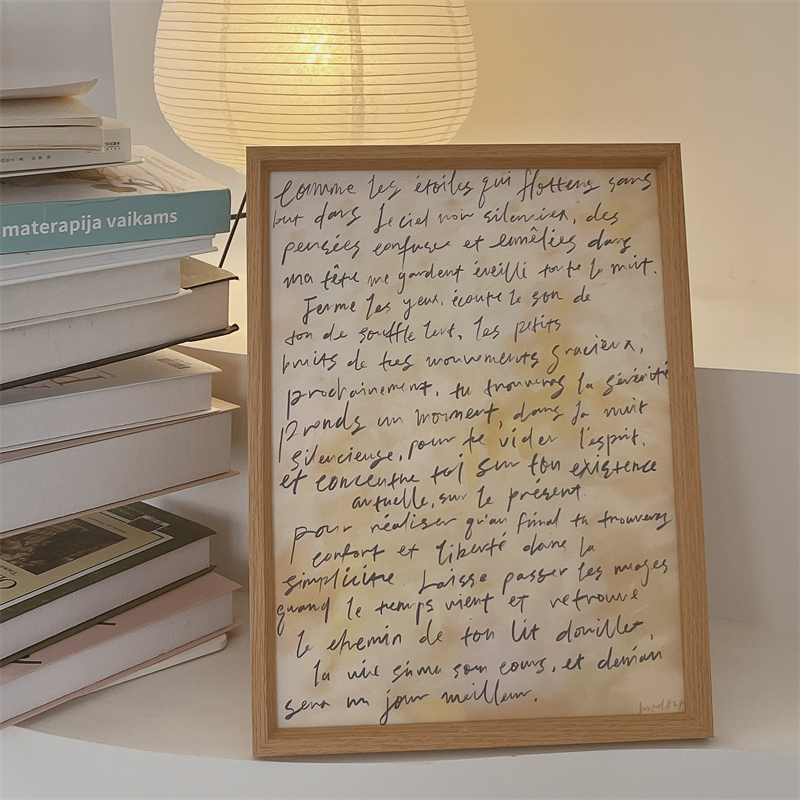 materapija vaikams
Comme les étoiles qui flottent sans
but dans le ciel noir silencieux, des
pensées confuses et emmêlées dans
ma tête me gardent éveillé toute la nuit.
Ferme les yeux, écoute le son de
ton de souffle lent, les petits
bruits de tes mouvements gracieux,
prochainement, tu trouveras la sérénité
Prends un moment, dans la nuit
silencieuse, pour te vider l'esprit.
et concentre toi sur ton existence
actuelle, sur le présent.
pour réaliser qu'au final tu trouveras
confort et liberté dans la
simplicité. Laisse passer les nuages
quand le temps vient et retrouve
le chemin de ton lit douillet,
la vie suit son cours, et demain
sera un jour meilleur.